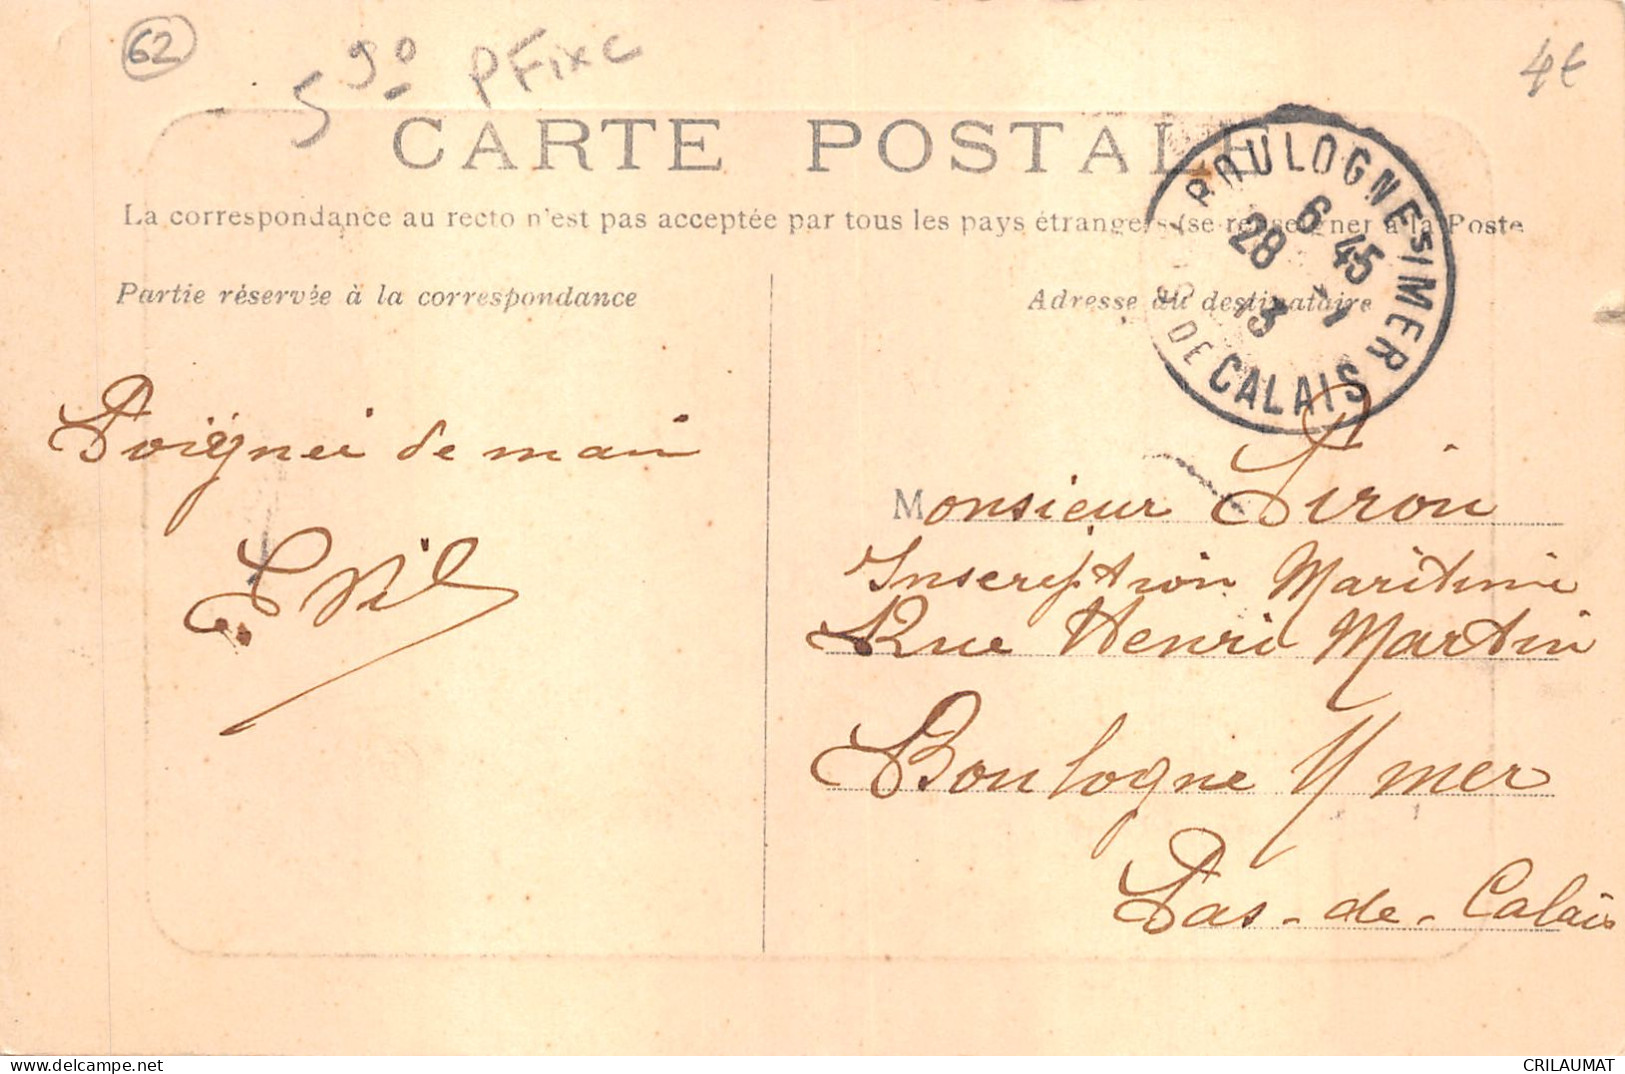 62
5 90 PFixe
4€
CARTE POSTALE
La correspondance au recto n'est pas acceptée par tous les pays étrangers (se renseigner à la Poste
Partie réservée à la correspondance
Adresse du destinataire
BOULOGNE S/MER
6 45
28 -1
13
PAS DE CALAIS
Poignée de main
Monsieur Piron
Inscription Maritime
Rue Henri Martin
Boulogne s/ mer
Pas-de-Calais
CRILAUMAT